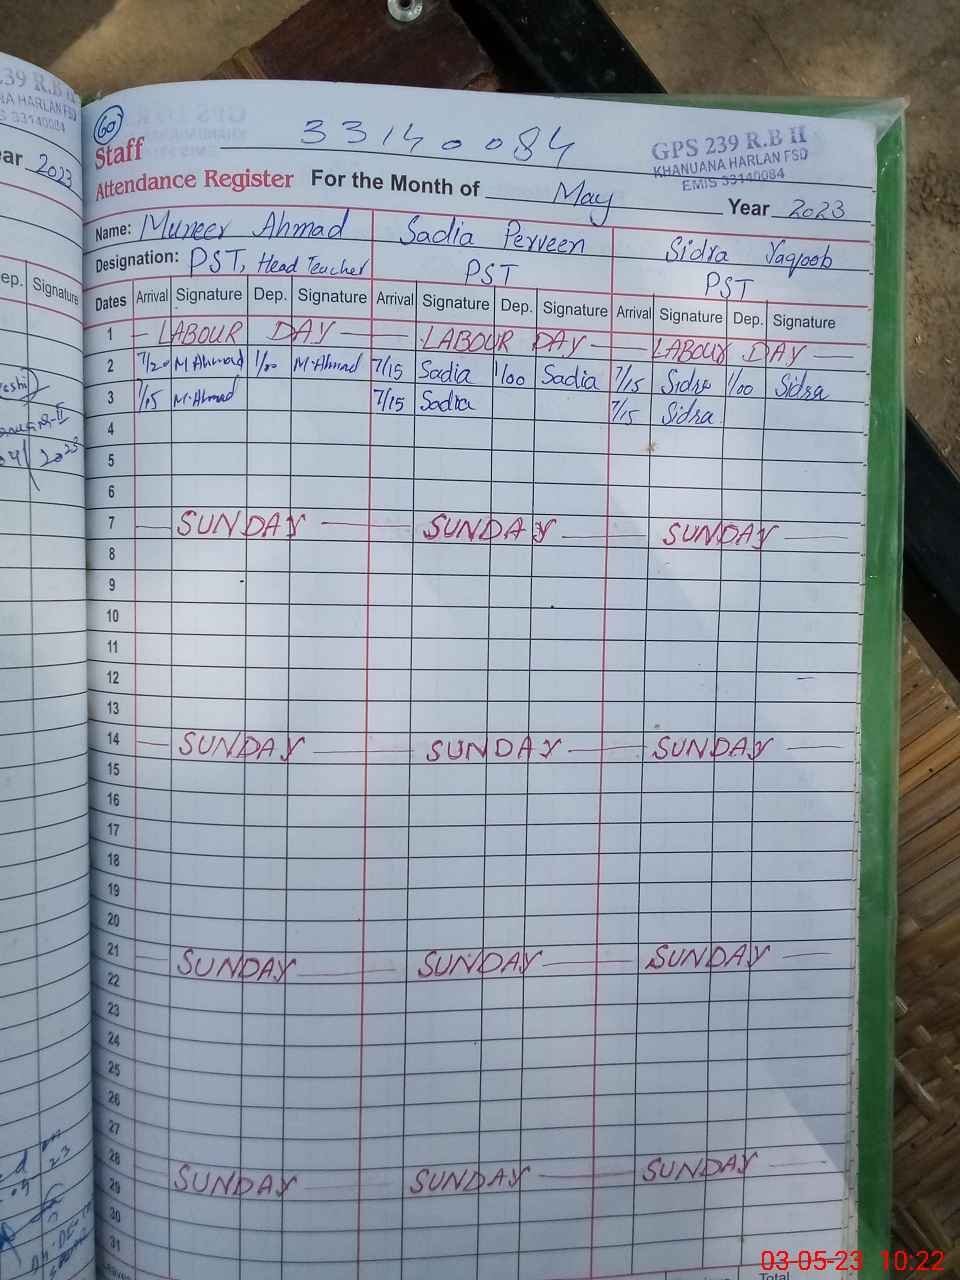 239 R.B II
NA HARLAN FSD
S 33140084
ear 2023
Dep. Signature
2023
60
Staff 33140084
GPS 239 R.B II
KHANUANA HARLAN FSD
EMIS 33140084
Attendance Register For the Month of May Year 2023
Name: Muneer Ahmad Sadia Perveen Sidra Yaqoob
Designation: PST, Head Teacher PST PST
Dates Arrival Signature Dep. Signature Arrival Signature Dep. Signature Arrival Signature Dep. Signature
1 — LABOUR DAY — — LABOUR DAY — — LABOUR DAY —
2 7/20 M Ahmad 1/00 M.Ahmad 7/15 Sadia 1/00 Sadia 7/15 Sidra 1/00 Sidra
3 7/15 M.Ahmad 7/15 Sadia 7/15 Sidra
4
5
6
7 — SUNDAY — SUNDAY — SUNDAY —
8
9
10
11
12
13
14 — SUNDAY — SUNDAY — SUNDAY —
15
16
17
18
19
20
21 — SUNDAY — SUNDAY — SUNDAY —
22
23
24
25
26
27
28 SUNDAY — SUNDAY — SUNDAY —
29
30
31
Total
03-05-23 10:22